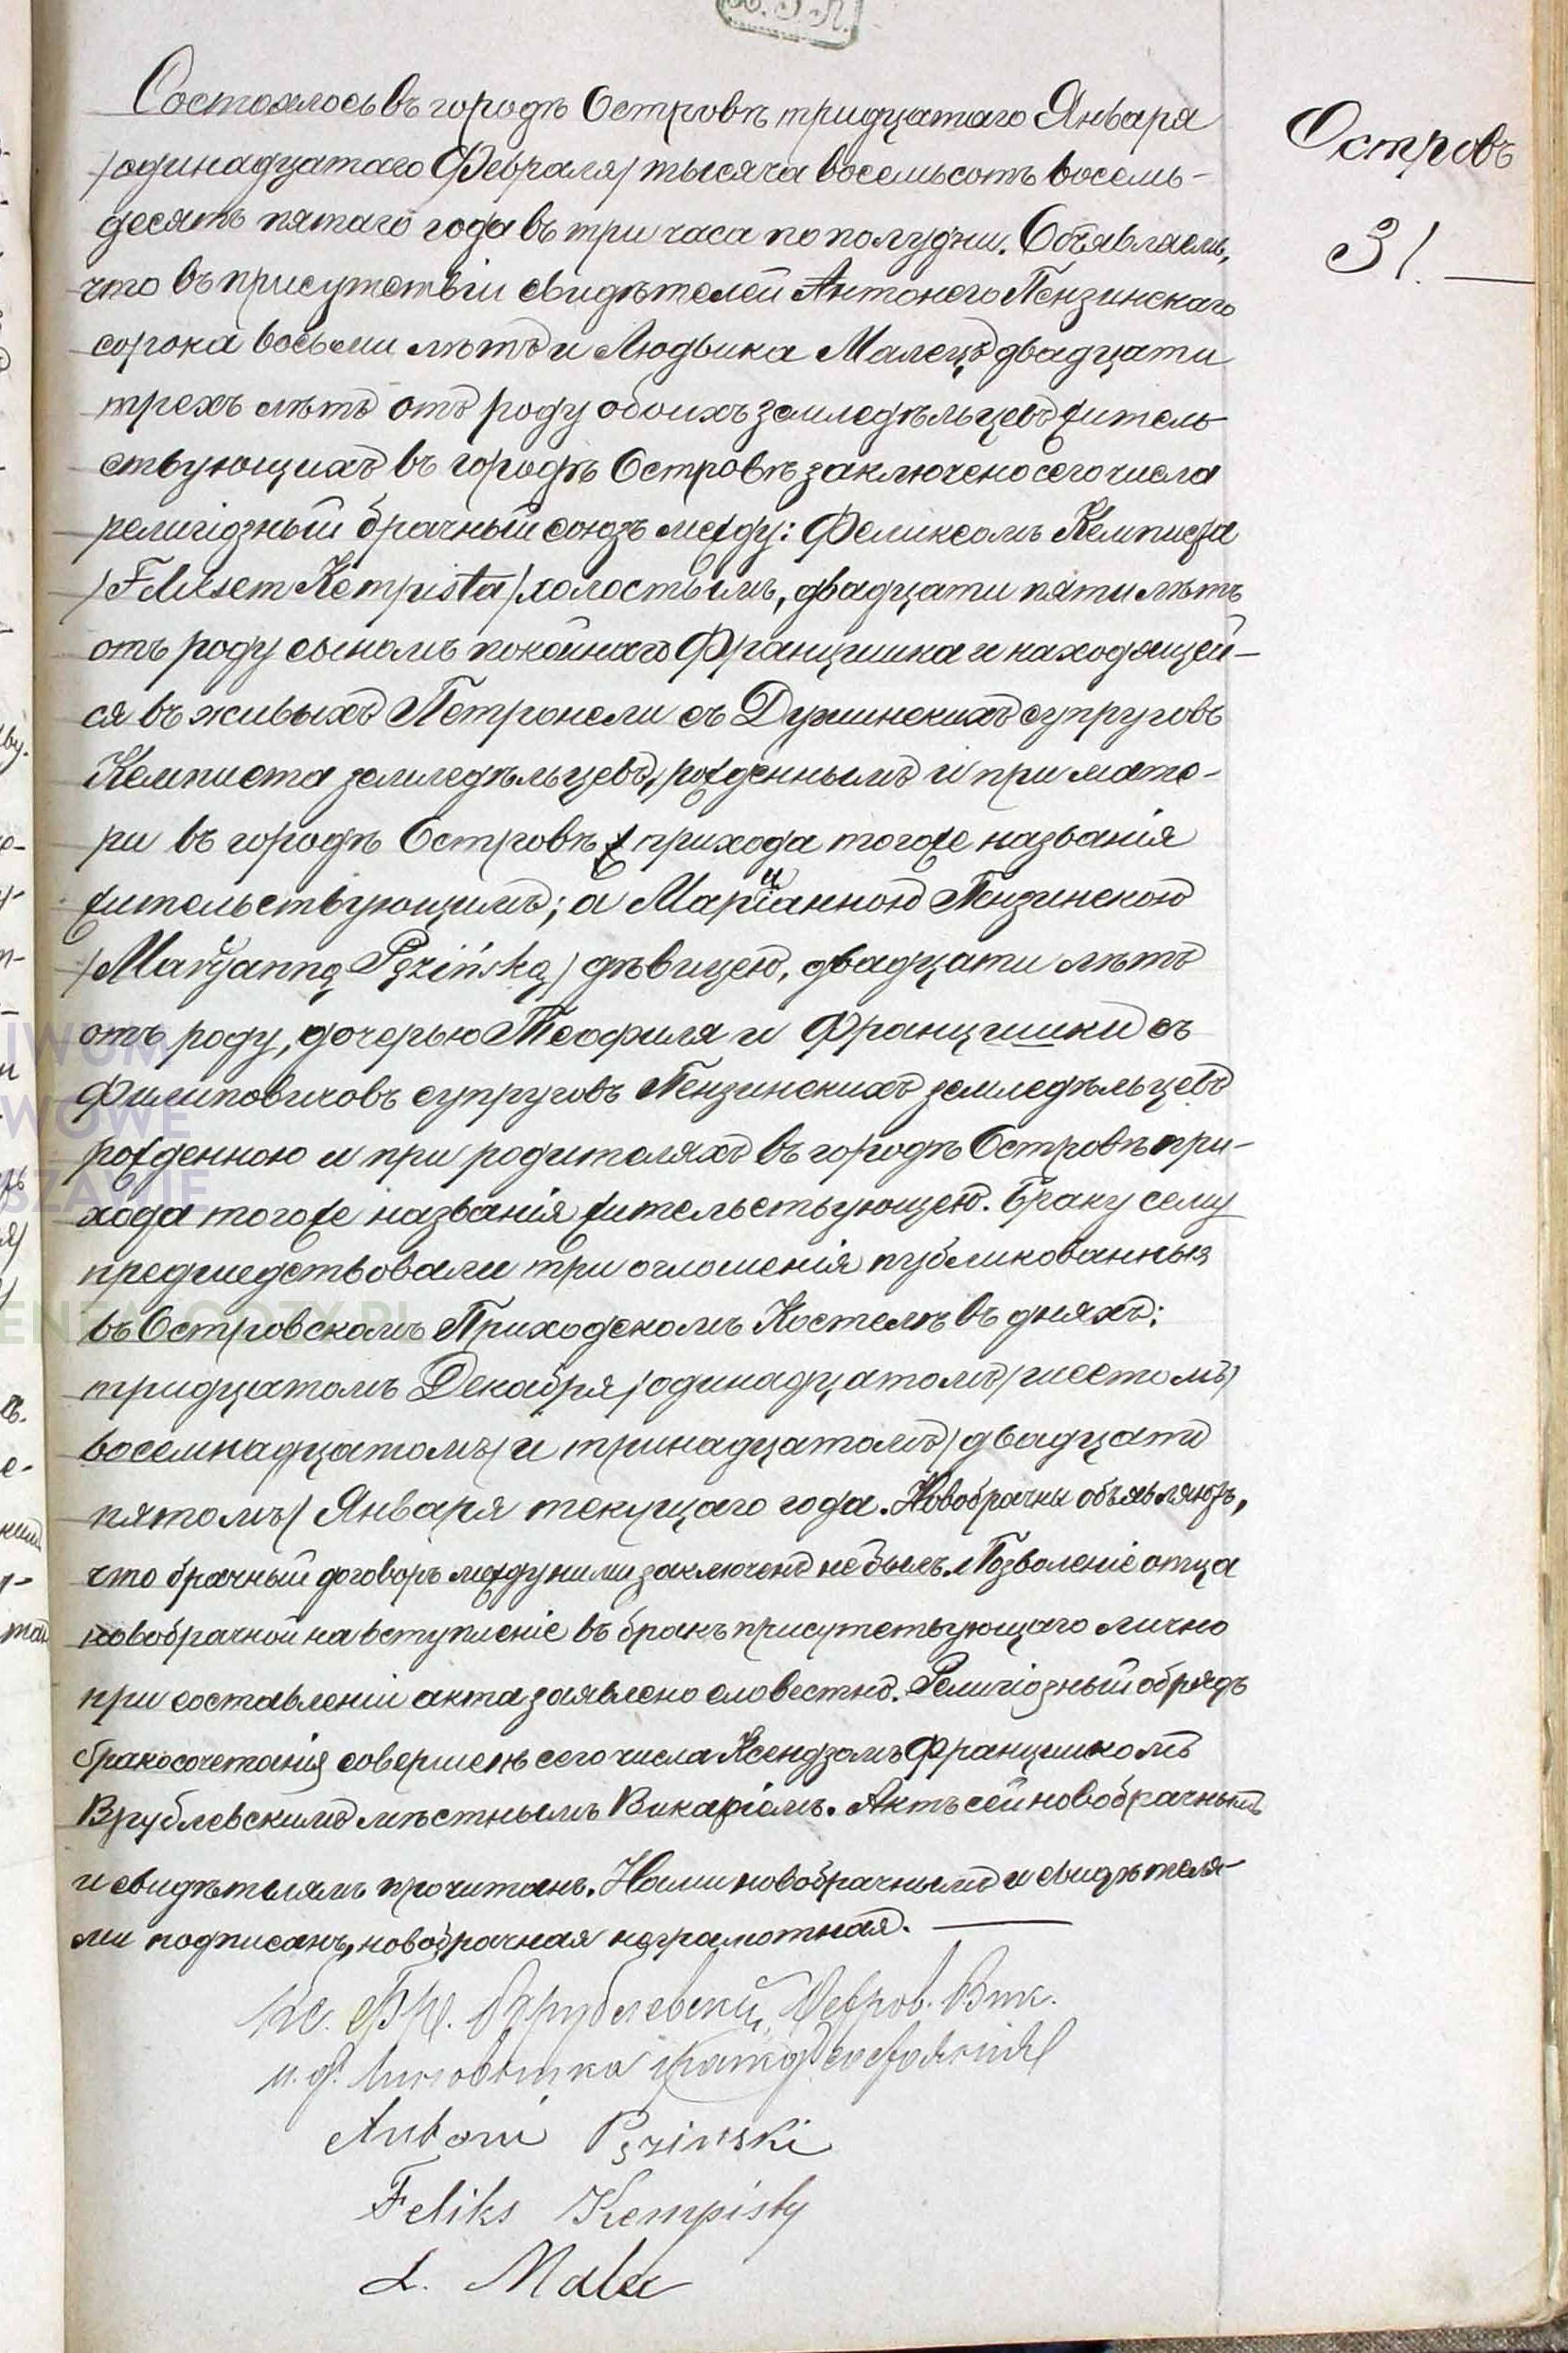 Состоялось въ городѣ Островѣ тридцатаго Января
/одинадцатаго Февраля/ тысяча восемьсотъ восемь-
десятъ пятаго года въ три часа по полудни. Объявляемъ,
что въ присутствіи свидѣтелей Антонего Пензинскаго
сорока восьми лѣтъ и Людвика Малецъ двадцати
трехъ лѣтъ отъ роду обоихъ земледѣльцевъ житель-
ствующихъ въ городѣ Островѣ заключено сего числа
религіозный брачный союзъ между: Феликсомъ Кемписта
/Feliksem Kempista/ холостымъ, двадцати пяти лѣтъ
отъ роду сыномъ покойнаго Францишка и находящей-
ся въ живыхъ Петронели съ Дужинскихъ супруговъ
Кемписта земледѣльцевъ, рожденнымъ и при мате-
ри въ городѣ Островѣ прихода тогоже названія
жительствующимъ; а Маріанною Пензинскою
/Maryanną Pęzińską/ дѣвицею, двадцати лѣтъ
отъ роду, дочерью Теофиля и Францишки съ
Филиповичовъ супруговъ Пензинскихъ земледѣльцевъ
рожденною и при родителяхъ въ городѣ Островѣ при-
хода тогоже названія жительствующею. Браку сему
предшедствовали три оглошенія публикованныя
въ Островскомъ Приходскомъ Костелѣ въ дняхъ:
тридцатомъ Декабря /одинадцатомъ/ шестомъ/
восемнадцатомъ/ и тринадцатомъ/ двадцати
пятомъ/ Января текущаго года. Новобрачны объявляютъ,
что брачный договоръ между ними заключенъ не былъ. Позволеніе отца
новобрачной на вступленіе въ бракъ присутствующаго лично
при составленіи акта заявлено словестно. Религіозный обрядъ
бракосочетанія совершенъ сего числа Ксендзомъ Францишкомъ
Врублевскимъ мѣстнымъ Викаріомъ. Актъ сей новобрачнымъ
и свидѣтелямъ прочитанъ. Нами новобрачнымъ и свидѣтеля-
ми подписанъ, новобрачная неграмотная.
Кс. Фр. Врублевскій, Остров. Вик.
и. д. Чиновника гражд. состоянія
Antoni Pęzinski
Feliks Kempisty
L. Malec
Островъ
31.